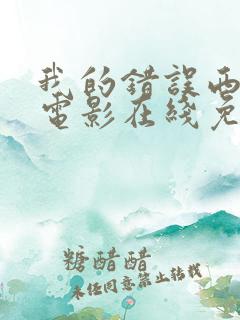 我的错误西
電影在綫免
糖醋醋
未经同意禁止转载